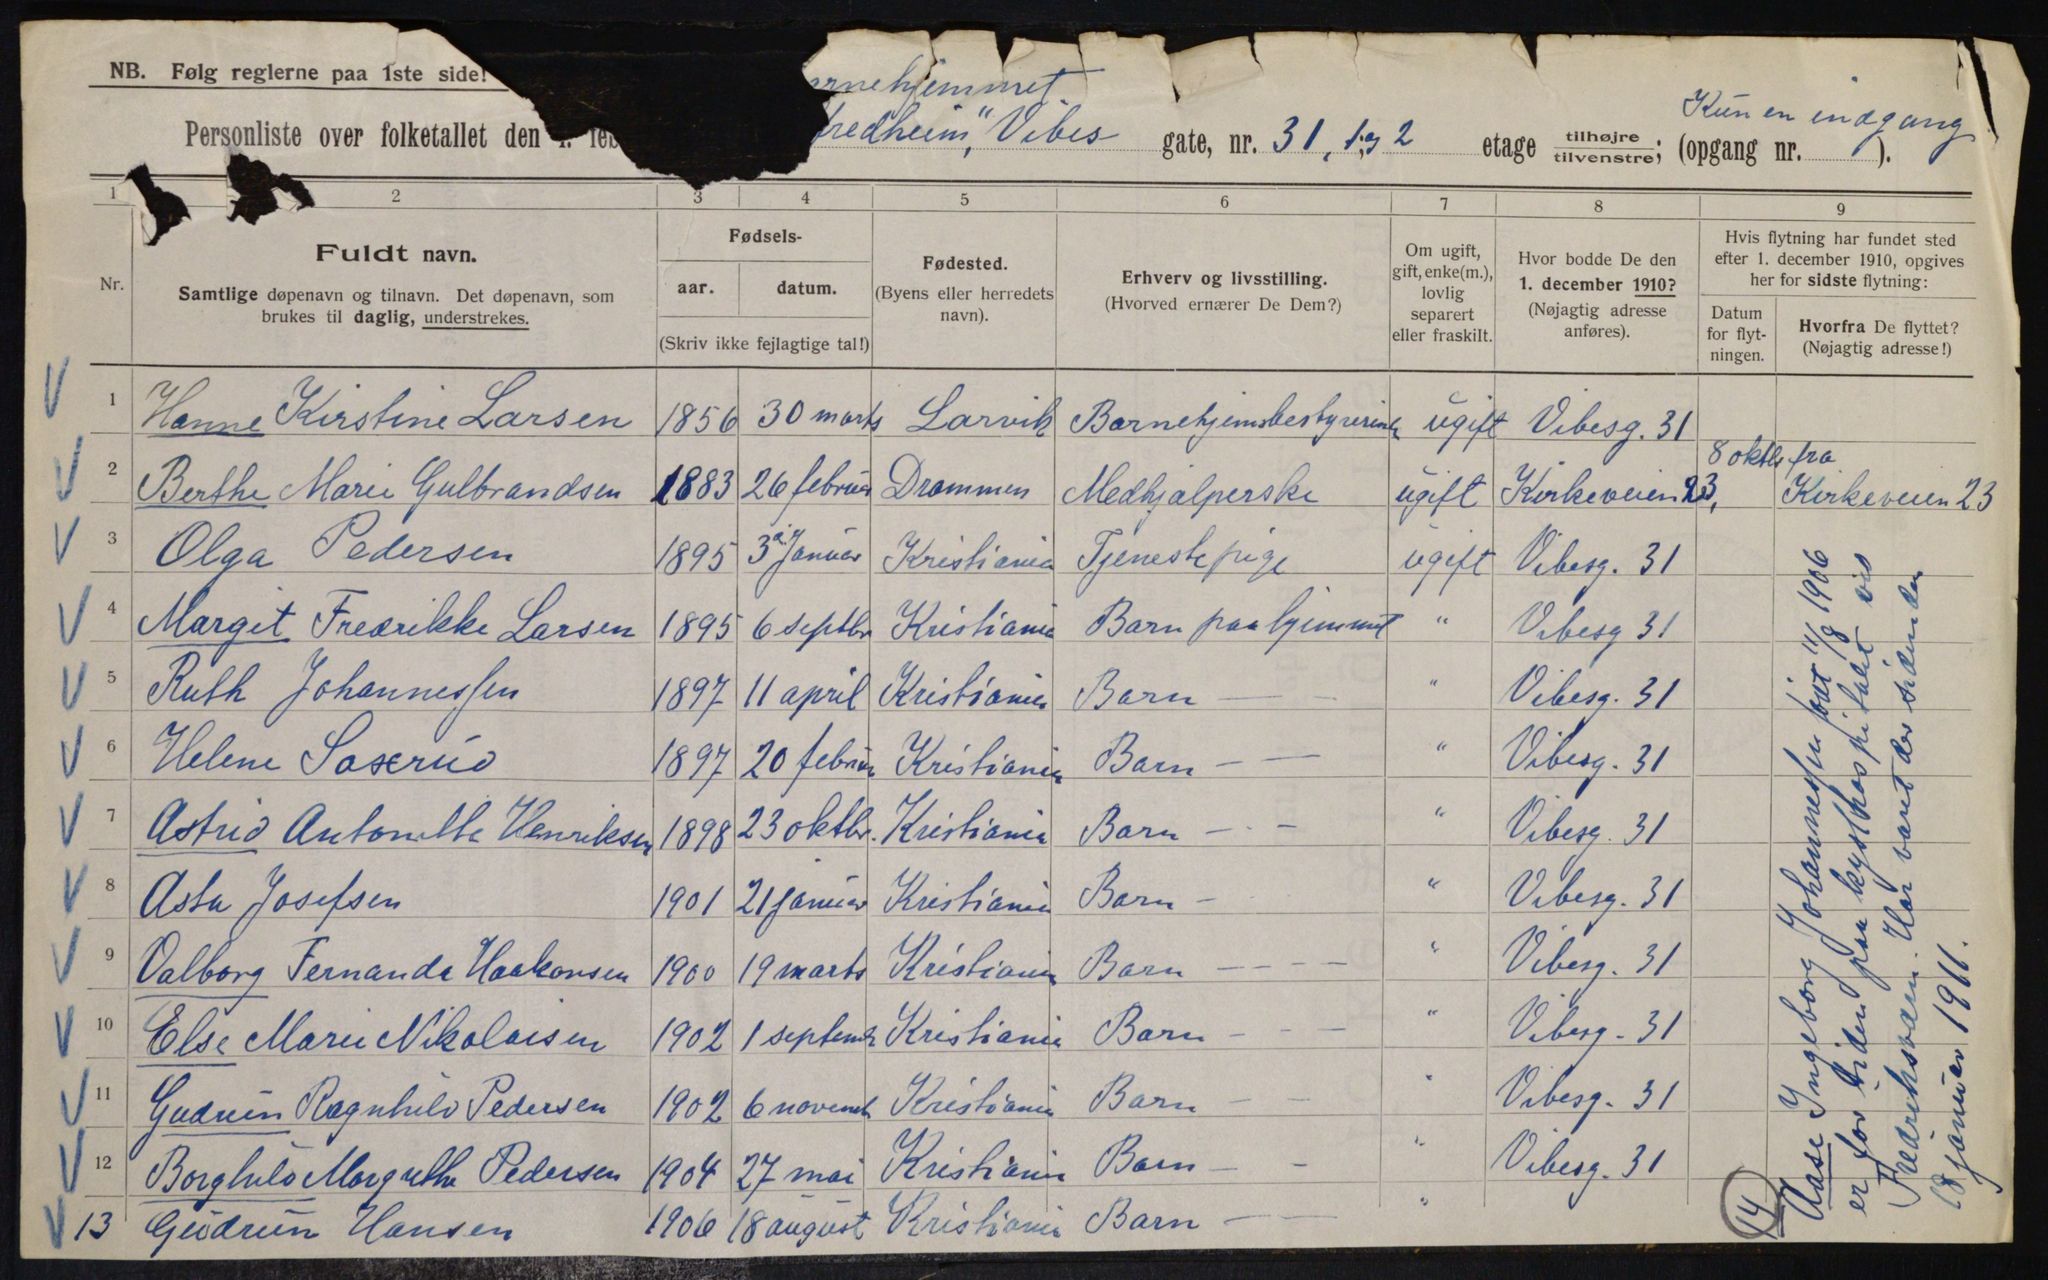 NB. Følg reglerne paa 1ste side!
rnehjemmet
Kun en indgang
Personliste over folketallet den 1. feb redheim", Vibes gate, nr. 31, 1 og 2 etage tilhøjre tilvenstre; (opgang nr. ).
1 2 3 4 5 6 7 8 9
Nr.
Fuldt navn.
Samtlige døpenavn og tilnavn. Det døpenavn, som
brukes til daglig, understrekes.
Fødsels-
aar. datum.
(Skriv ikke fejlagtige tal!)
Fødested.
(Byens eller herredets
navn).
Erhverv og livsstilling.
(Hvorved ernærer De Dem?)
Om ugift,
gift, enke(m.),
lovlig
separert
eller fraskilt.
Hvor bodde De den
1. december 1910?
(Nøjagtig adresse
anføres).
Hvis flytning har fundet sted
efter 1. december 1910, opgives
her for sidste flytning:
Datum
for flyt-
ningen.
Hvorfra De flyttet?
(Nøjagtig adresse!)
1 Hanne Kirstine Larsen 1856 30 marts Larvik Barnehjemsbestyrerinde ugift Vibesg. 31
2 Berthe Marie Gulbrandsen 1883 26 februar Drammen Medhjælperske ugift Kirkeveien 23, 8 oktbr fra Kirkeveien 23
3 Olga Pedersen 1895 3 januar Kristiania Tjenestepige ugift Vibesg. 31
4 Margit Fredrikke Larsen 1895 6 septbr Kristiania Barn paa hjemmet " Vibesg 31
5 Ruth Johannessen 1897 11 april Kristiania Barn — — " Vibesg. 31
6 Helene Saxerud 1897 20 februar Kristiania Barn — — " Vibesg. 31
7 Astrid Antonette Henriksen 1898 23 oktbr. Kristiania Barn - - " Vibesg. 31
8 Asta Josefsen 1901 21 januar Kristiania Barn - " Vibesg. 31
9 Valborg Fernanda Haakonsen 1900 19 marts Kristiania Barn - - - - " Vibesg. 31
10 Else Marie Nikolaisen 1902 1 septembr Kristiania Barn - - - " Vibesg. 31
11 Gudrun Ragnhild Pedersen 1902 6 novembr Kristiania Barn - - " Vibesg. 31
12 Borghild Margrethe Pedersen 1904 27 mai Kristiania Barn - - " Vibesg. 31
13 Gudrun Hansen 1906 18 august Kristiania Barn — — "
14 Aase Ingeborg Johannessen født 11/8 1906
er for tiden paa kysthospitalet ved
Fredriksværn. Har været der siden den
18 januar 1911.